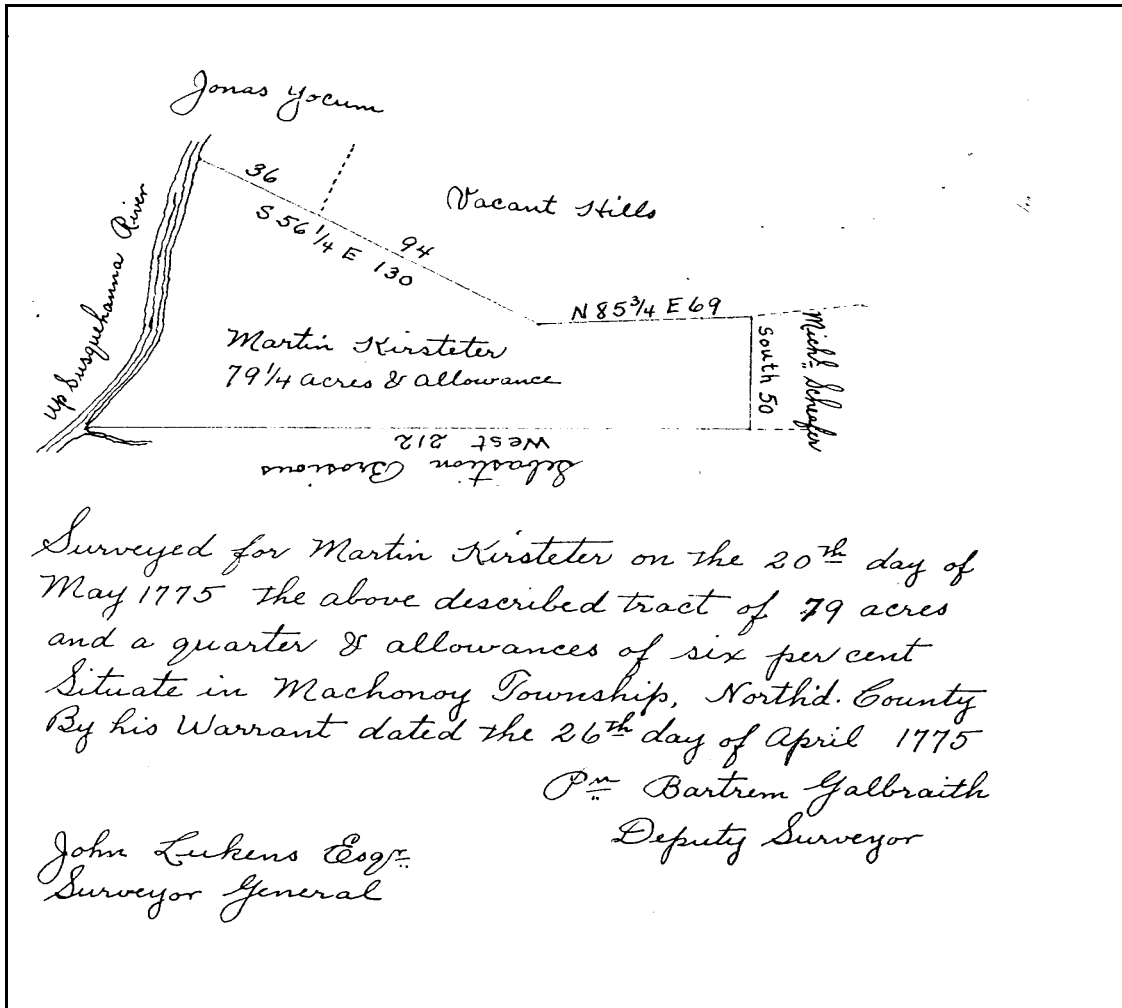 Jonas Yocum
36
S 56 1/4 E 130
94
Vacant Hills
Up Susquehanna River
N 85 3/4 E 69
South 50
Mich.l Scheafer
Martin Kirsteter
79 1/4 acres & allowance
West 212
Sebastion Brosious
Surveyed for Martin Kirsteter on the 20th day of
May 1775 the above described tract of 79 acres
and a quarter & allowances of six per cent
Situate in Machonoy Township, North'd. County
By his Warrant dated the 26th day of April 1775
Bartrem Galbraith
Deputy Surveyor
John Lukens Esqr.
Surveyor General